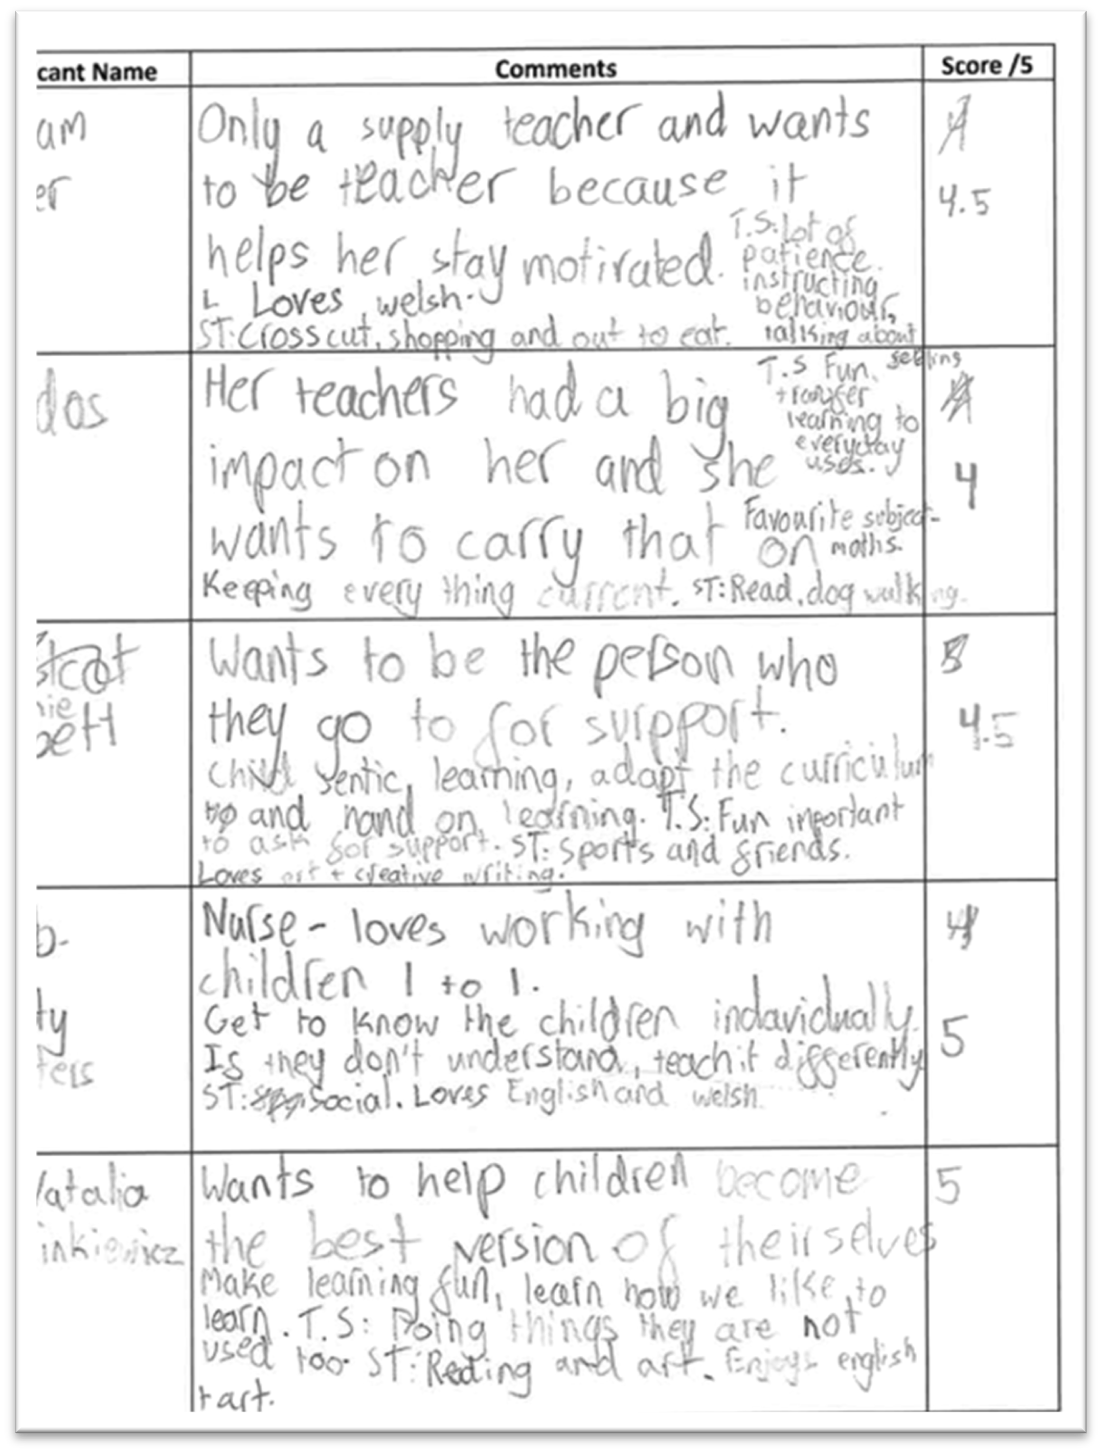 cant Name Comments Score /5
am Only a supply teacher and wants
er to be teacher because it 4.5
helps her stay motivated. T.S: lot of
patience.
instructing
L Loves welsh. behaviour,
ST: Cross cut, shopping and out to eat. talking about
feeling
dos Her teachers had a big T.S Fun,
transfer
learning to
impact on her and she everyday
uses. 4
wants to carry that on Favourite subject-
maths.
Keeping every thing current. ST: Read, dog walking.
stcat Wants to be the person who 5
nie they go to for surpport. 4.5
bett
child sentic, learning, adapt the curriculum
and hand on learning. T.S: Fun important
to ask for support. ST: sports and friends.
Loves art + creative writing.
o- Nurse - loves working with 4
children 1 to 1.
ty Get to know the children indavidually. 5
ters If they don't understand, teach it differently
ST: social. Loves English and welsh.
Natalia Wants to help children become 5
inkiewicz the best version of theirselves
Make learning fun, learn how we like to
learn. T.S: Doing things they are not
used too. ST: Reading and art. Enjoys english
+ art.